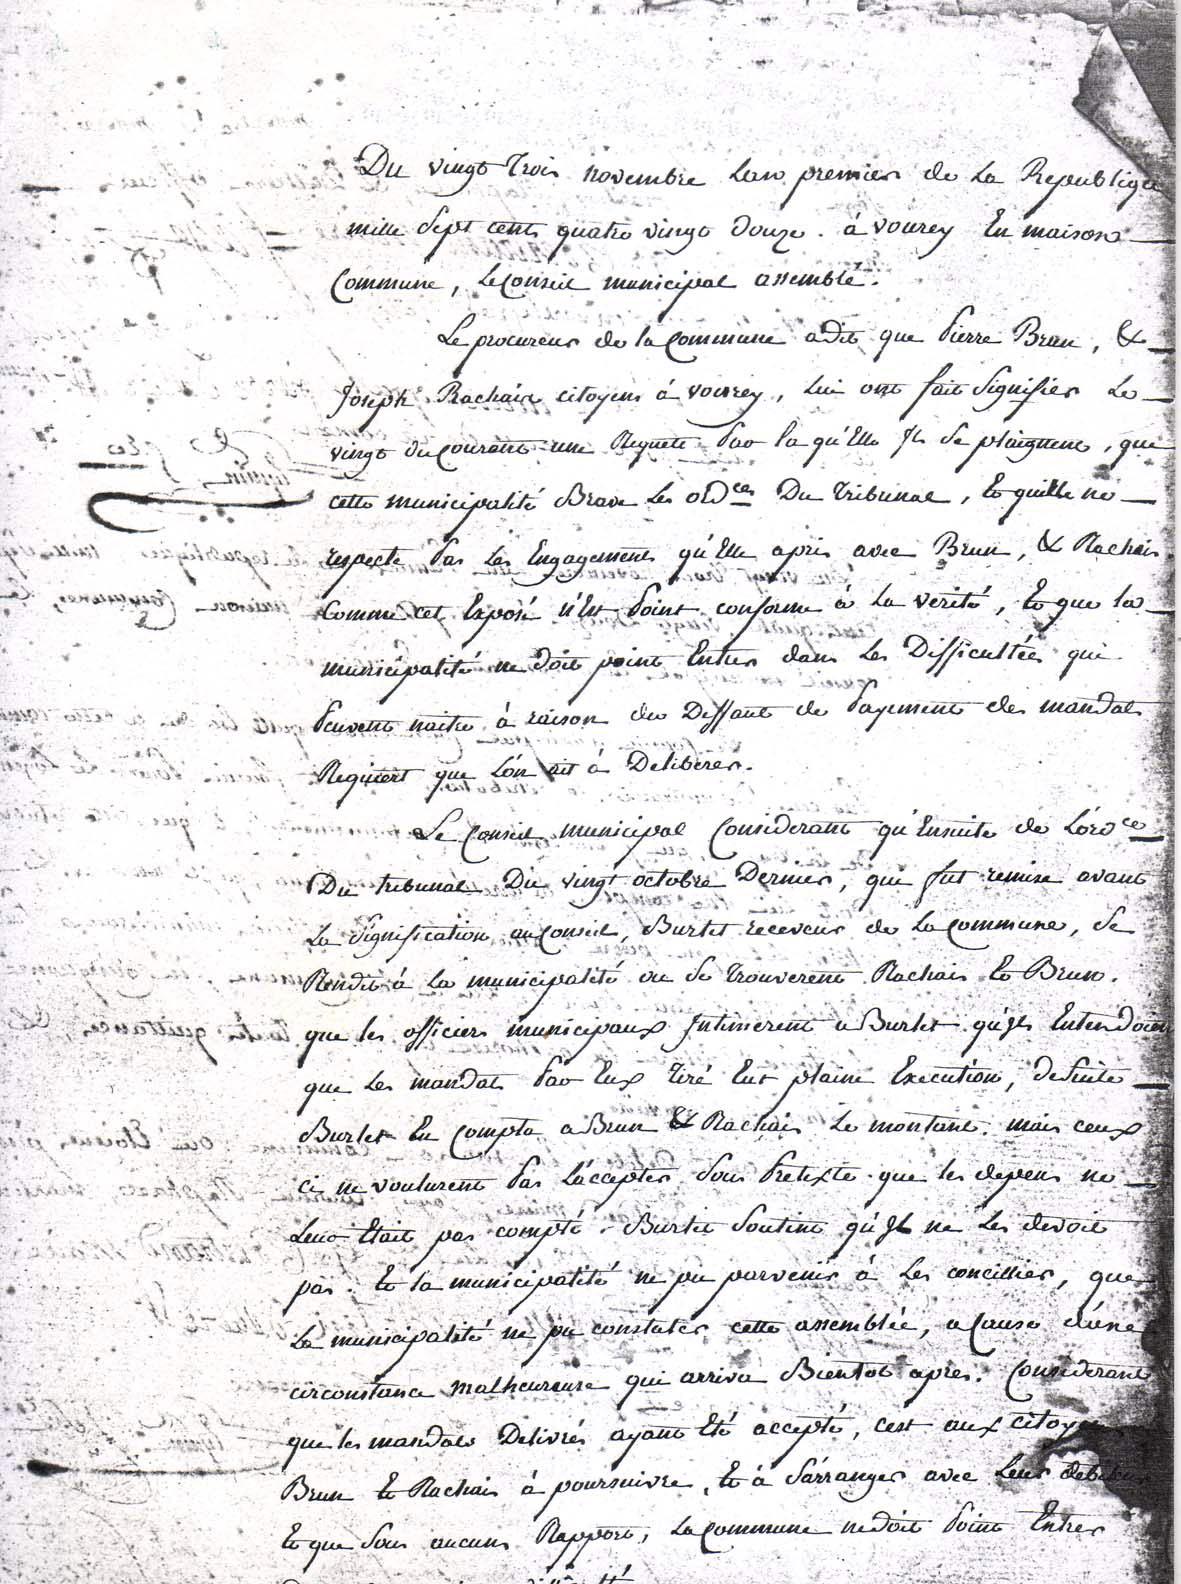 Du vingt trois novembre Lan premier de La Republique
mille Sept cent quatre vingt douze. à vourey En maison
Commune, Le Conseil municipal assemblé.
Le procureur de la Commune a dit que Pierre Brun, &
Joseph Rachais citoyens à vourey, Lui ont fait Signifier Le
vingt du Courant une Requete Par la qu'Elle Jls Se plaignent, que
cette municipalité Brave Les ordces Du Tribunal, Et quille ne
respecte Pas Les Engagements qu'Elle apris avec Brun, & Rachais
Comme cet Exposé n'Est Point conforme à La verité, Et que la
municipalité ne doit point Entrer dans Les Difficultées qui
Peuvent naitre à raison du Deffaut de Payement des mandats
Requiert que Lón ait à Deliberer.
Le Conseil municipal Considerant qu'Ensuite de Lórdce
Du tribunal Du vingt octobre Dernier, que fut remise avant
La Signification au Conseil, Burlet receveur de La Commune, Se
Rendit à La municipalité ou Se Trouverent Rachais Et Brun.
que les officiers municipaux Jntimerent a Burlet qu'Jls Entendoient
que Les mandats Par Eux Tiré Eut plaine Execution, de Suite
Burlet En Compta a Brun & Rachais Le montant. mais ceux
ci ne voulurent Pas Láccepter Sous Pretexte que les depens ne
Leur Etait pas compté. Burlet Soutint qu'Jl ne Les devoit
pas. Et la municipalité ne pu parvenir à Les concillier, que
La municipalité ne pu constater cette assemblée, a Cause dúne
circonstance malheureuse qui arriva Bientot apres. Considerant
que les mandats Delivrés ayant Eté accepté, cest aux citoyens
Brun Et Rachais à poursuivre, Et à Sárranger avec Leur debiteur
Et que Sous aucuns Rapport, La Commune ne doit Point Entrer